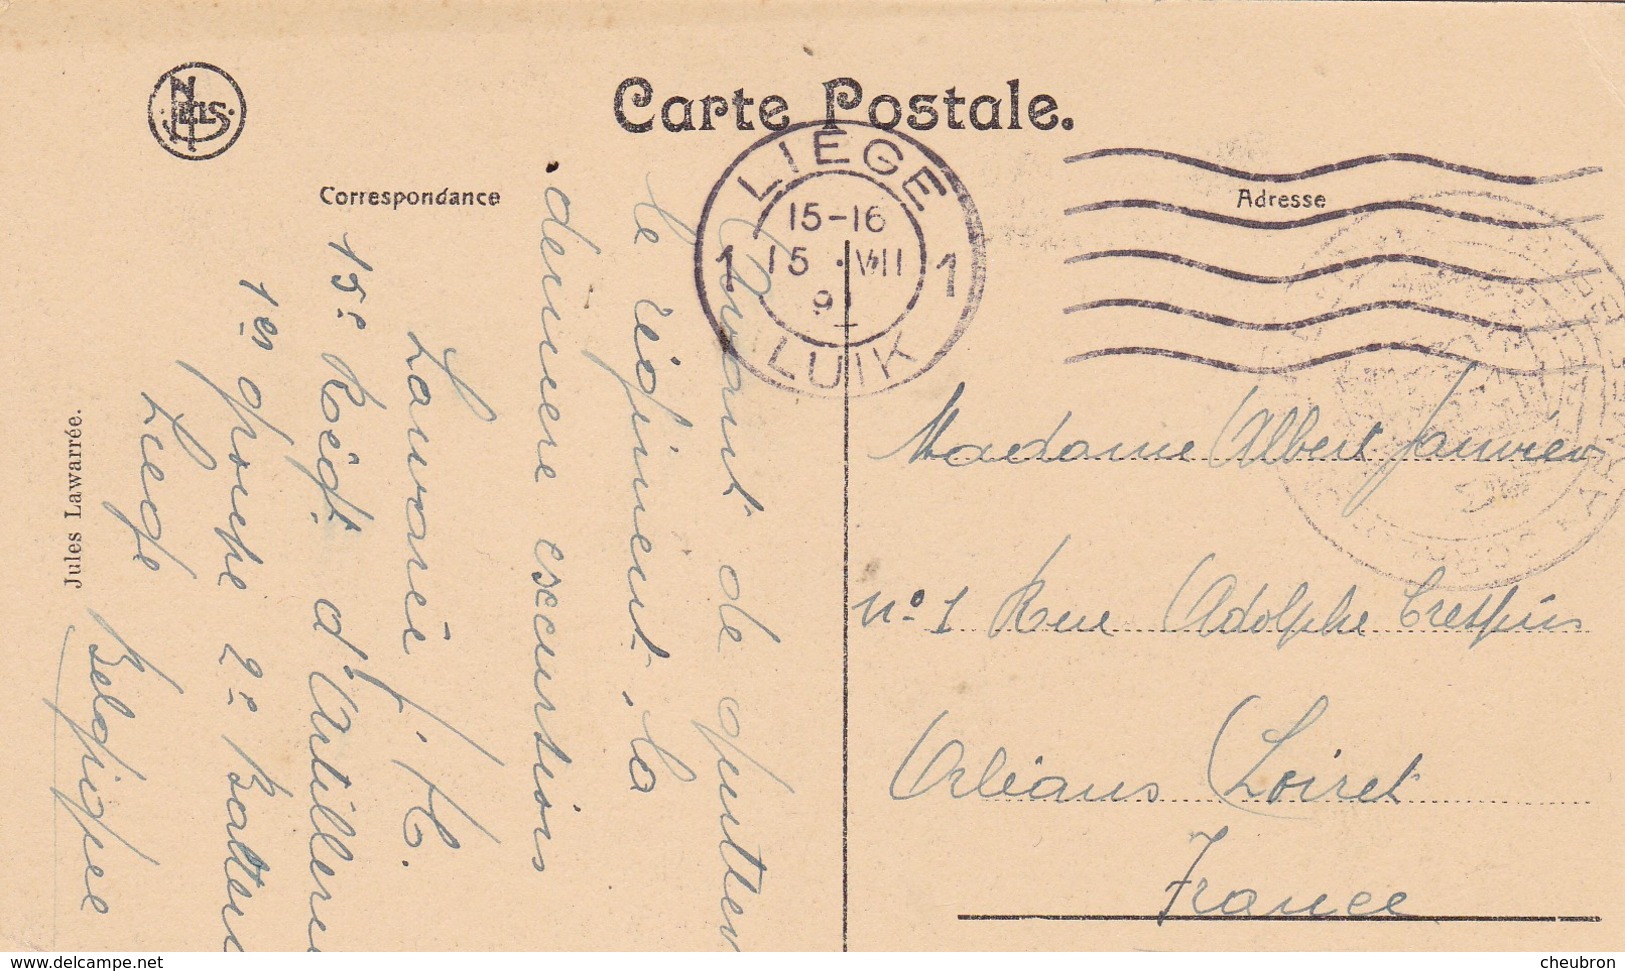 NELS
Carte Postale.
Correspondance
Adresse
LIEGE
15-16
1 15 · VIII 1
9
LUIK
Avant de quitter
le régiment, la
dernière escurtion
Lauvarié J. H.
15e Régt d'Artillerie
1er groupe 2e Batterie
Liege Belgique
Jules Lawarrée.
Madame Albert Janvier
No 1 Rue Adolphe Crespin
Orléans Loiret
France
www.delcampe.net
cheubron